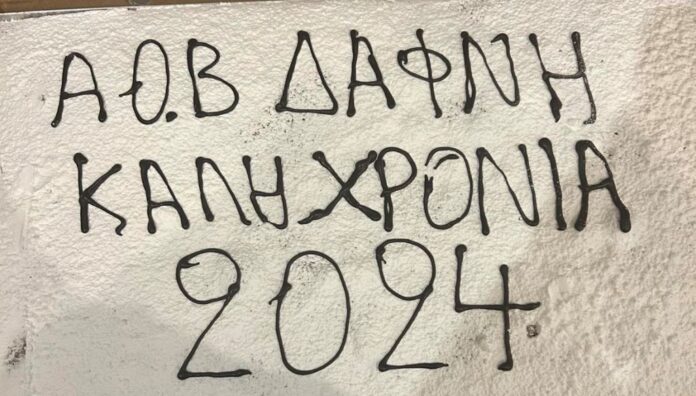 Α.Θ.Β ΔΑΦΝΗ
ΚΑΛΗ ΧΡΟΝΙΑ
2024